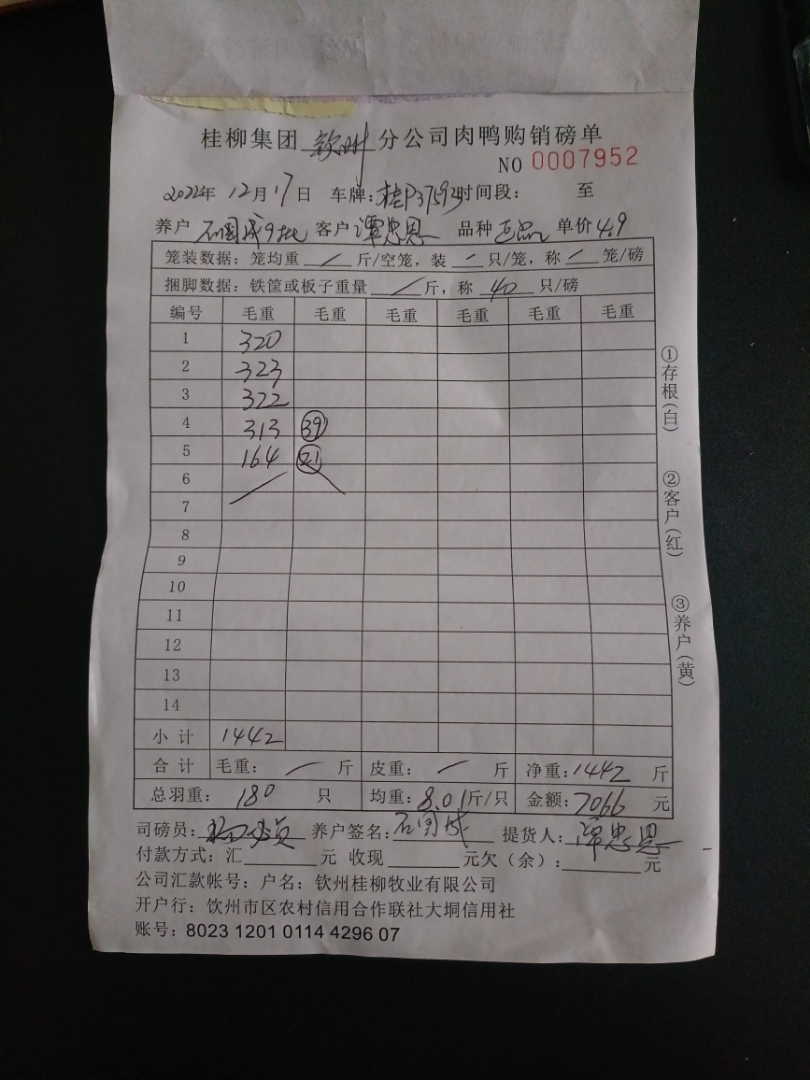 桂柳集团 钦州 分公司肉鸭购销磅单
NO 0007952
2022年 12月 17日 车牌: 桂P37592 时间段: 至
养户 石国成9批 客户 谭忠恩 品种 正品 单价 4.9
笼装数据: 笼均重 / 斤/空笼, 装 / 只/笼, 称 / 笼/磅
捆脚数据: 铁筐或板子重量 / 斤, 称 40 只/磅
编号 毛重 毛重 毛重 毛重 毛重 毛重
1 320
2 323
3 322
4 313 39
5 164 21
6
7
8
9
10
11
12
13
14
小计 1442
合计 毛重: / 斤 皮重: / 斤 净重: 1442 斤
总羽重: 180 只 均重: 8.01 斤/只 金额: 7066 元
司磅员: 养户签名: 石国成 提货人: 谭忠恩
付款方式: 汇 元 收现 元欠(余): 元
公司汇款帐号: 户名: 钦州桂柳牧业有限公司
开户行: 钦州市区农村信用合作联社大垌信用社
账号: 8023 1201 0114 4296 07
①存根(白)
②客户(红)
③养户(黄)